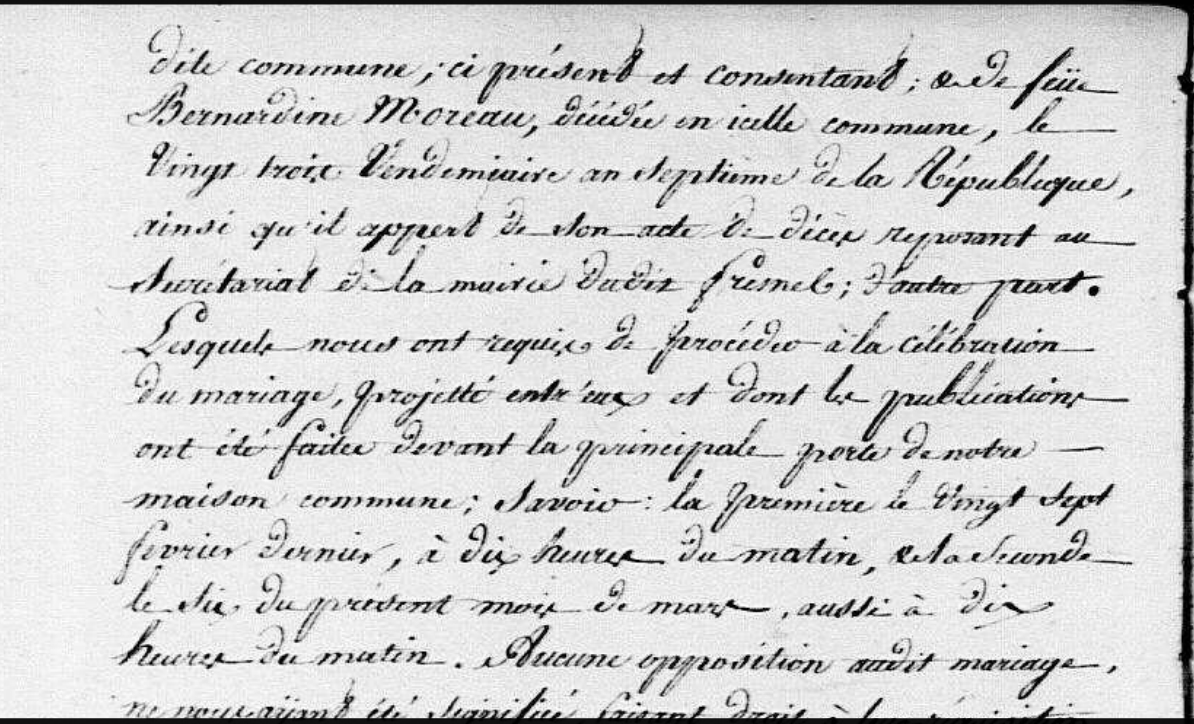 dite commune; ci présent et consentant; & de feüe
Bernardine Moreau, décédée en icelle commune, le
Vingt trois Vendemiaire an Septième de la République,
ainsi qu'il appert de son acte de décès reposant au
Secrétariat de la mairie dudit Fremel; d'autre part.
Lesquels nous ont requis de procéder à la célébration
du mariage, projetté entr'eux et dont les publications
ont été faites devant la principale porte de notre
maison commune; Savoir: la première le Vingt Sept
fevrier dernier, à dix heures du matin, & la Seconde
le Six du présent mois de mars, aussi à dix
heures du matin. Aucune opposition audit mariage,
ne nous aiant été Signifiée faisant droit à leur